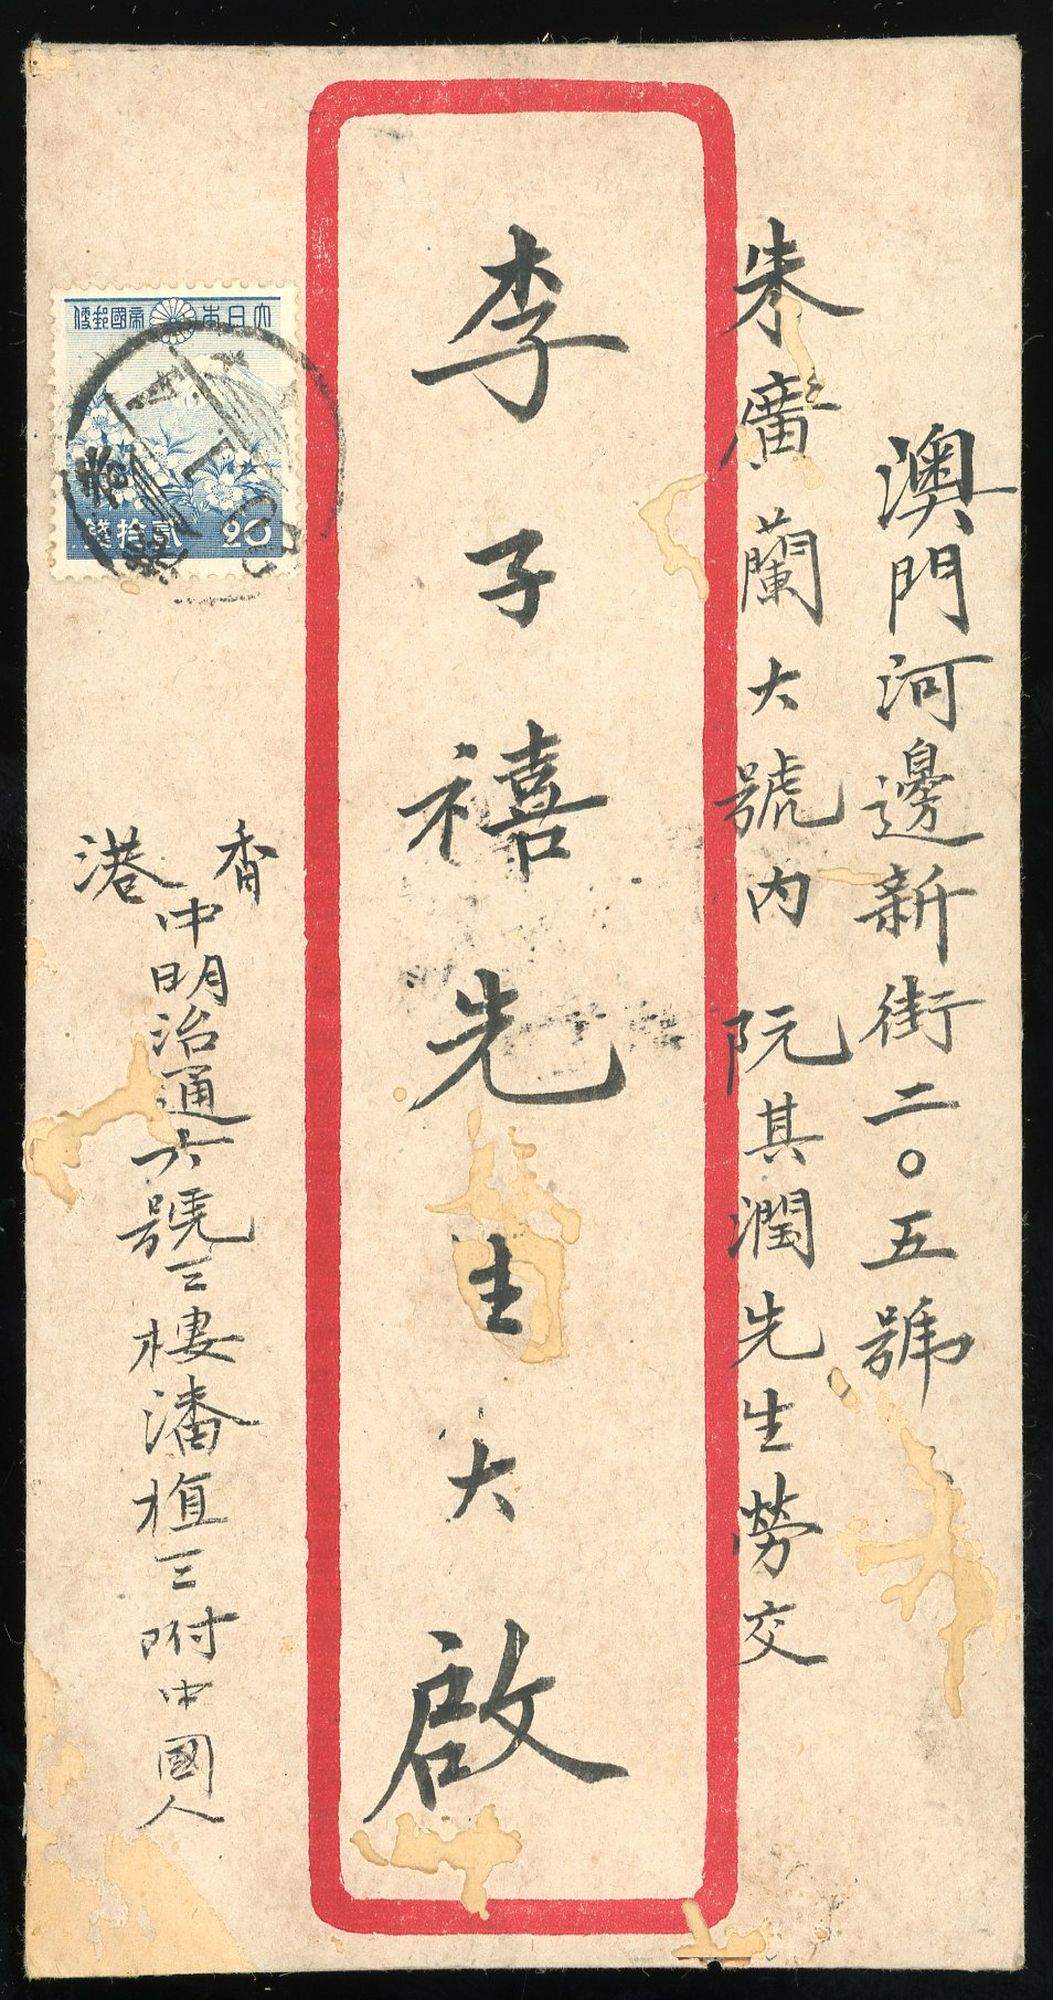 澳門河邊新街二〇五號
朱廣蘭大號内 阮其潤先生勞交
李子禧先生大啟
大日本帝國郵便
貳拾錢
20
香港
中明治通六號三樓潘植三附中國人